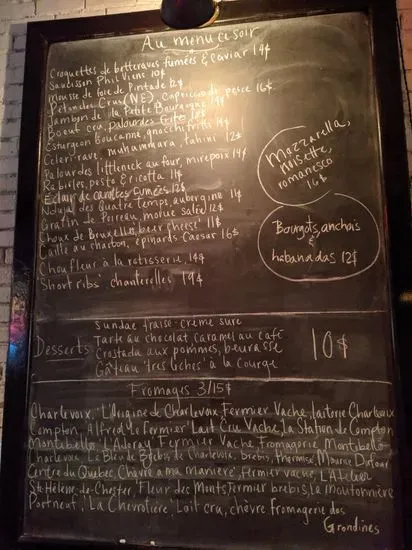 Au menu ce soir
Croquettes de betteraves fumées & caviar 14$
Saucisson Phil Viens 10$
Mousse de foie de Pintade 12$
Pétoncles Crus (NE) Capriccioli, perse 16$
Jambon de la Petite Bourgogne 14$
Boeuf cru, palourdes frites
Esturgeon boucané, gnocchi fritti 14$
Céleri-rave, muhummara, tahini 12$
Palourdes littleneck au four, mirepoix 14$
Rabioles, pesto & ricotta 11$
Éclair de carottes fumées 12$
Nduja des Quatre Temps, aubergine 11$
Gratin de Poireau, morue salée 12$
Choux de Bruxelles, beer cheese 11$
Caille au charbon, épinards Caesar 16$
Chou fleur à la rotisserie, 14$
Short ribs chanterelles 19$
Mozzarella,
noisette,
romanesco
16$
Bourgots, anchois
&
habanadas 12$
Desserts
Sundae fraise-crème sure
Tarte au chocolat caramel au café
Crostada aux pommes, beurasse
Gâteau "tres leches" à la courge
10$
Fromages 3/15$
Charlevoix, L'Origine de Charlevoix, Fermier, Vache, laiterie Charlevoix
Compton, Alfred le Fermier, Lait Cru, Vache, la Station de Compton
Montebello, L'Adoray, Fermier, Vache, Fromagerie Montebello
Charlevoix, Le Bleu de Brebis de Charlevoix, brebis, thermisé, Maurice Dufour
Centre du Québec, Chèvre à ma manière, fermier vache, L'Atelier
Ste-Hélène-de-Chester, Fleur des Monts, Fermier brebis, la Moutonnière
Portneuf, La Chevrotière, Lait cru, chèvre fromagerie des
Grondines